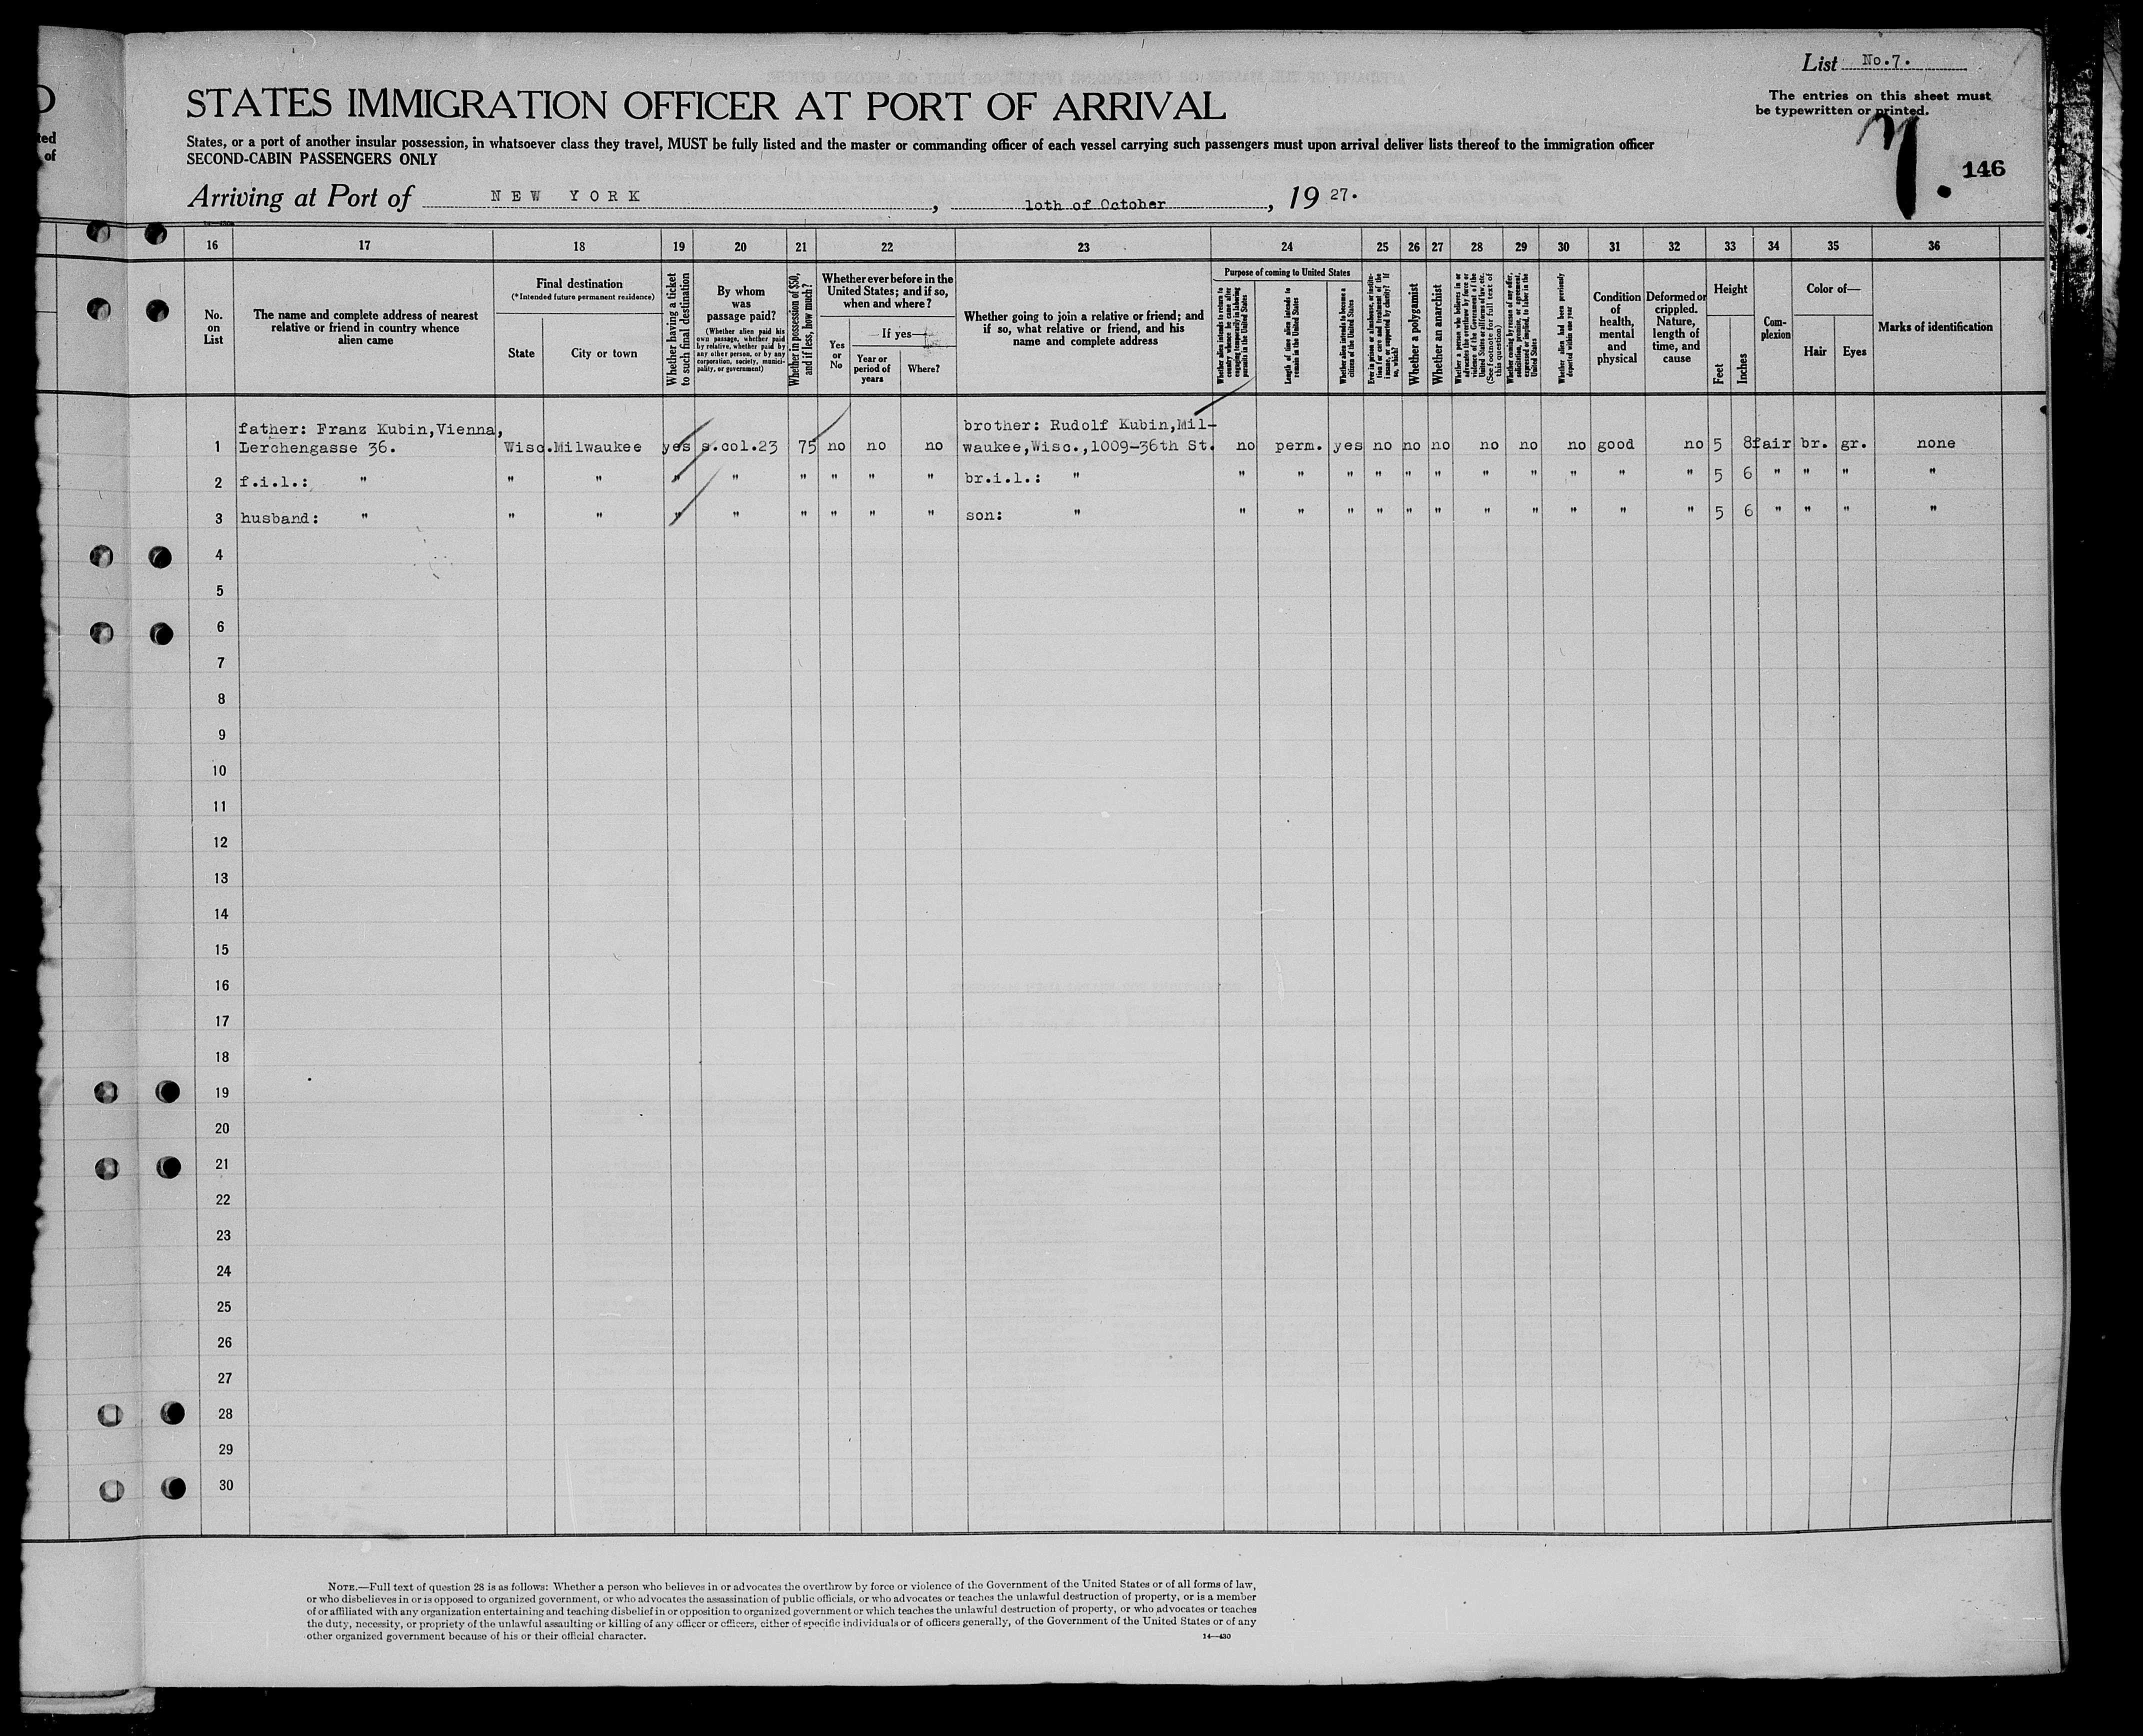 D
ted
of
List No.7.
The entries on this sheet must
be typewritten or printed.
7.
146
STATES IMMIGRATION OFFICER AT PORT OF ARRIVAL
States, or a port of another insular possession, in whatsoever class they travel, MUST be fully listed and the master or commanding officer of each vessel carrying such passengers must upon arrival deliver lists thereof to the immigration officer
SECOND-CABIN PASSENGERS ONLY
Arriving at Port of NEW YORK, 10th of October, 1927.
16 17 18 19 20 21 22 23 24 25 26 27 28 29 30 31 32 33 34 35 36
No.
on
List
The name and complete address of nearest
relative or friend in country whence
alien came
Final destination
(*Intended future permanent residence)
State
City or town
Whether having a ticket
to such final destination
By whom
was
passage paid?
(Whether alien paid his
own passage, whether paid
by relative, whether paid by
any other person, or by any
corporation, society, munici-
pality, or government)
Whether in possession of $50,
and if less, how much?
Whether ever before in the
United States; and if so,
when and where?
Yes
or
No
If yes—
Year or
period of
years
Where?
Whether going to join a relative or friend; and
if so, what relative or friend, and his
name and complete address
Purpose of coming to United States
Whether alien intends to return to
country whence he came after
engaging temporarily in laboring
pursuits in the United States
Length of time alien intends to
remain in the United States
Whether alien intends to become a
citizen of the United States
Ever in prison or almshouse, or institu-
tion for care and treatment of the
insane, or supported by charity? If
so, which?
Whether a polygamist
Whether an anarchist
Whether a person who believes in or
advocates the overthrow by force or
violence of the Government of the
United States or all forms of law, etc.
(See footnote for full text of
this question)
Whether coming by reason of any offer,
solicitation, promise, or agreement,
expressed or implied, to labor in the
United States
Whether alien had been previously
deported within one year
Condition
of
health,
mental
and
physical
Deformed or
crippled.
Nature,
length of
time, and
cause
Height
Feet
Inches
Com-
plexion
Color of—
Hair
Eyes
Marks of identification
father: Franz Kubin,Vienna, brother: Rudolf Kubin,Mil-
1 Lerchengasse 36. Wisc. Milwaukee yes s.col.23 75 no no no waukee,Wisc.,1009-36th St. no perm. yes no no no no no no good no 5 8 fair br. gr. none
2 f.i.l.: " " " " " " " " " br.i.l.: " " " " " " " " " " " " 5 6 " " " "
3 husband: " " " " " " " " " son: " " " " " " " " " " " " 5 6 " " " "
4
5
6
7
8
9
10
11
12
13
14
15
16
17
18
19
20
21
22
23
24
25
26
27
28
29
30
NOTE.—Full text of question 28 is as follows: Whether a person who believes in or advocates the overthrow by force or violence of the Government of the United States or of all forms of law,
or who disbelieves in or is opposed to organized government, or who advocates the assassination of public officials, or who advocates or teaches the unlawful destruction of property, or is a member
of or affiliated with any organization entertaining and teaching disbelief in or opposition to organized government or which teaches the unlawful destruction of property, or who advocates or teaches
the duty, necessity, or propriety of the unlawful assaulting or killing of any officer or officers, either of specific individuals or of officers generally, of the Government of the United States or of any
other organized government because of his or their official character.
14—430